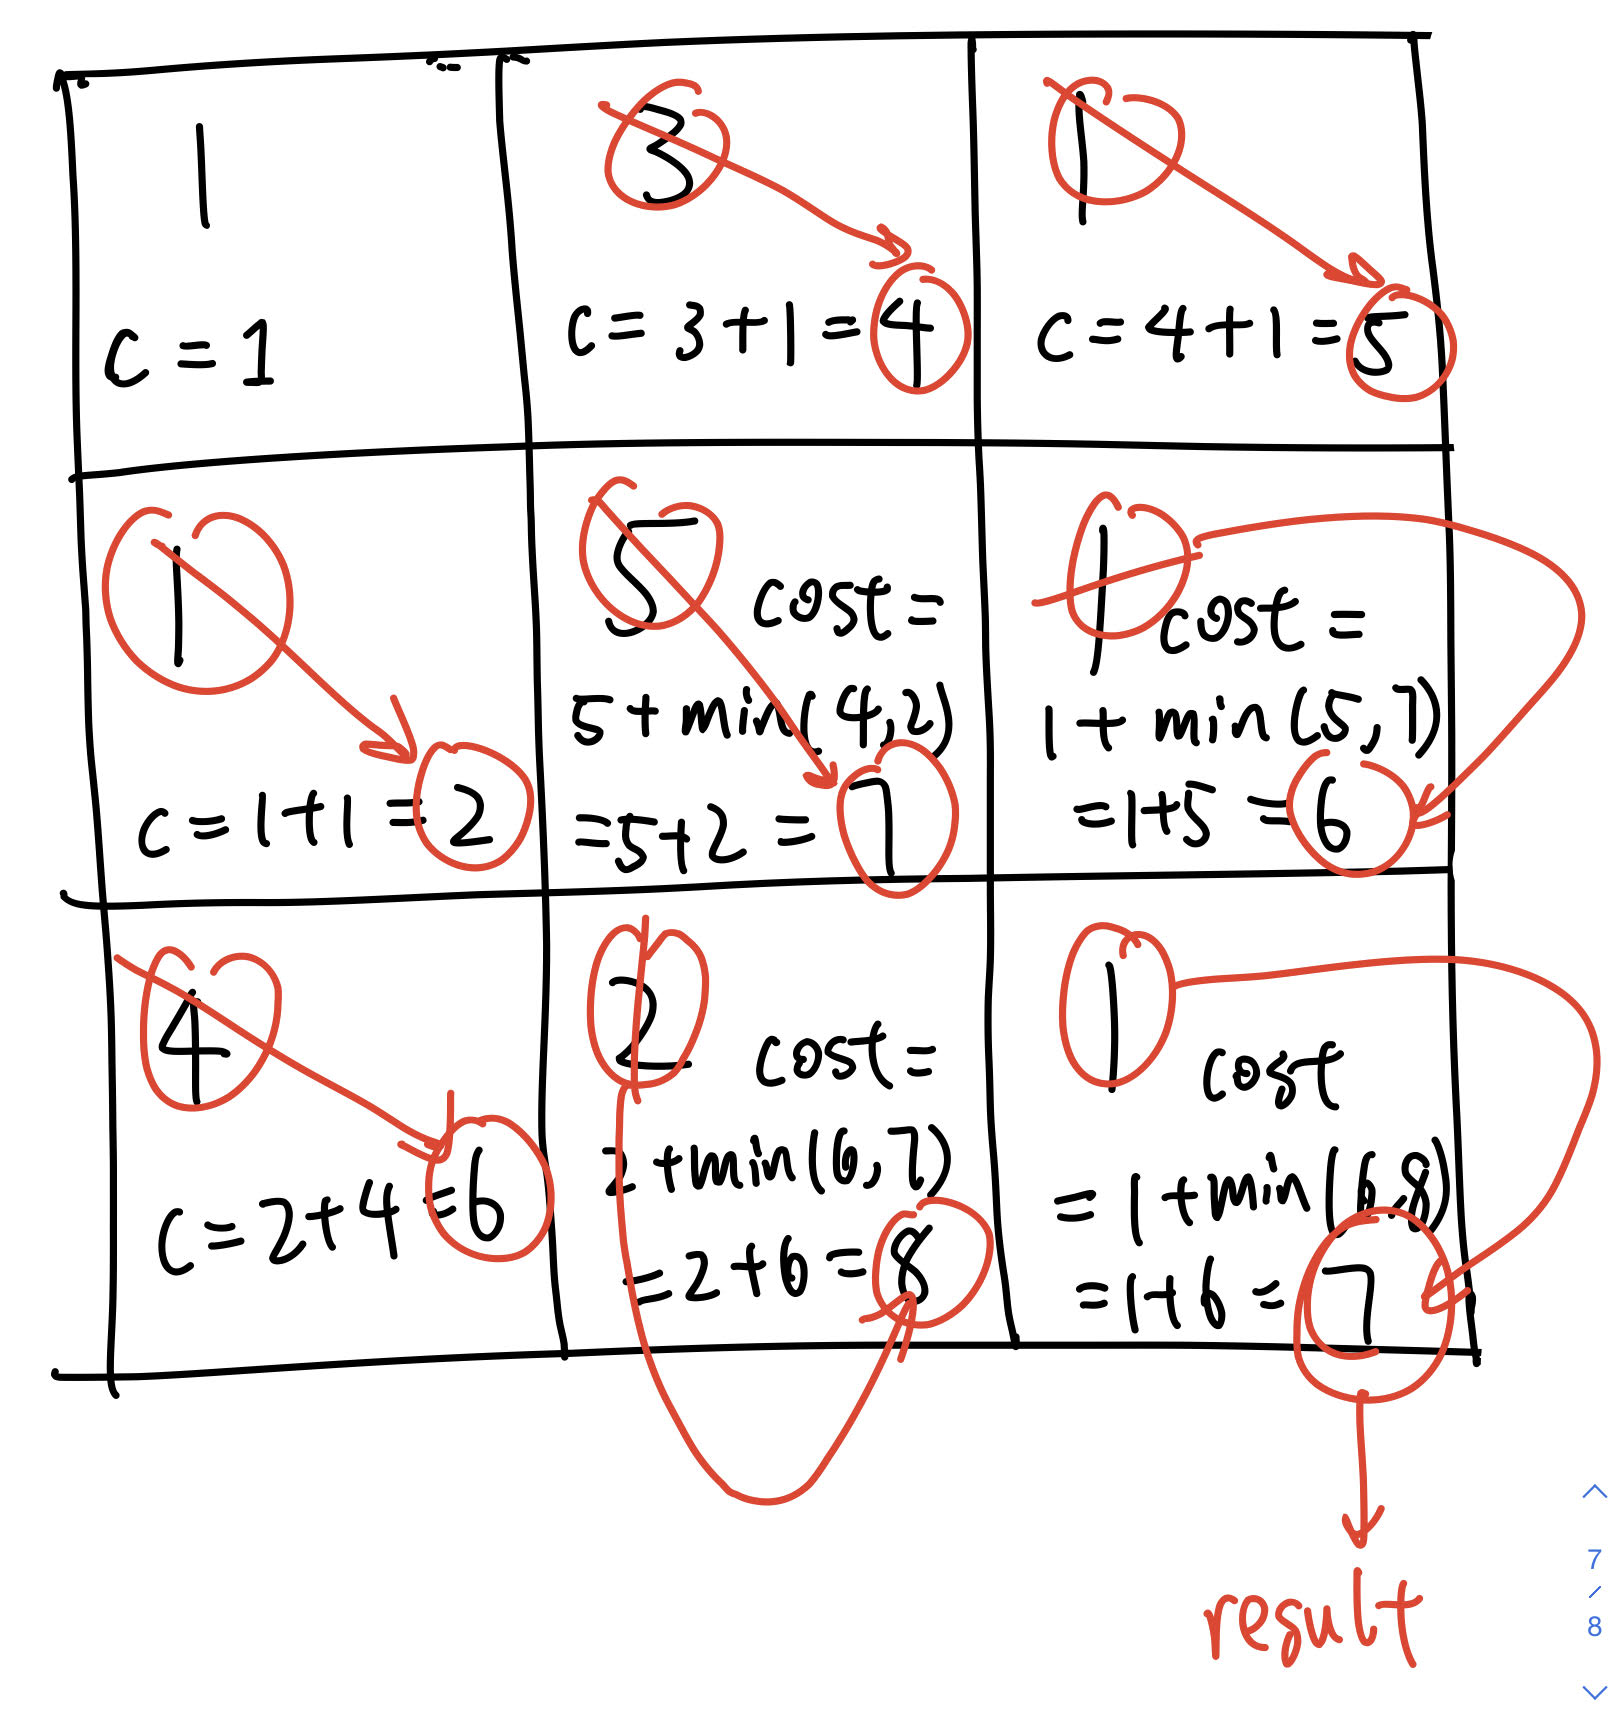 1
C = 1
3
C = 3 + 1 = 4
1
C = 4 + 1 = 5
1
C = 1 + 1 = 2
5
cost =
5 + min(4,2)
= 5 + 2 = 7
1
cost =
1 + min(5,7)
= 1 + 5 = 6
4
C = 2 + 4 = 6
2
cost =
2 + min(6,7)
= 2 + 6 = 8
1
cost
= 1 + min(6,8)
= 1 + 6 = 7
result
7
/
8